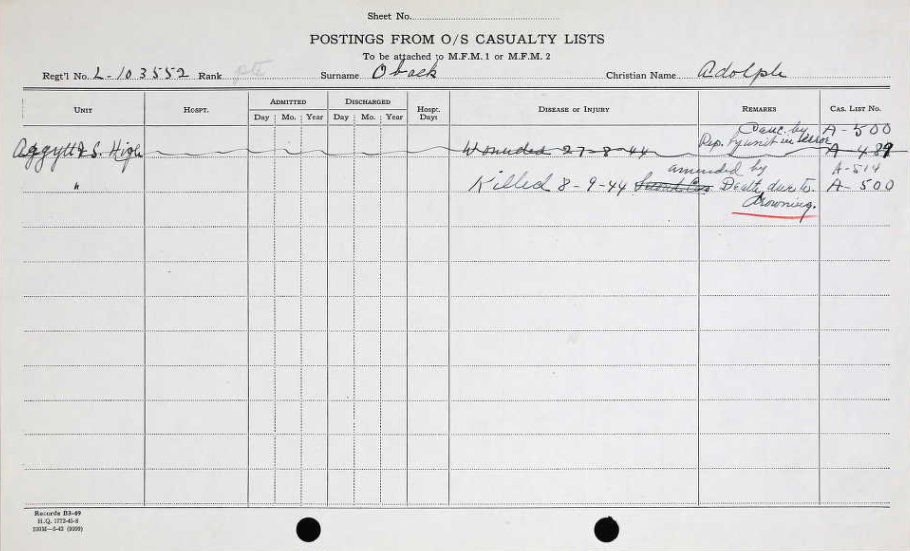 Sheet No.
POSTINGS FROM O/S CASUALTY LISTS
To be attached to M.F.M. 1 or M.F.M. 2
Regt'l No. L-103552 Rank Pte Surname Oback Christian Name Adolph
UNIT HOSPT. ADMITTED DISCHARGED Hospt. Days DISEASE or INJURY REMARKS CAS. LIST No.
Day Mo. Year Day Mo. Year
Canc. by A-500
& S. High Wounded 27-8-44 Rep. by unit in error A-489
amended by A-514
" Killed 8-9-44 Death due to A-500
drowning.
Records B3-69
H.Q. 1772-45-8